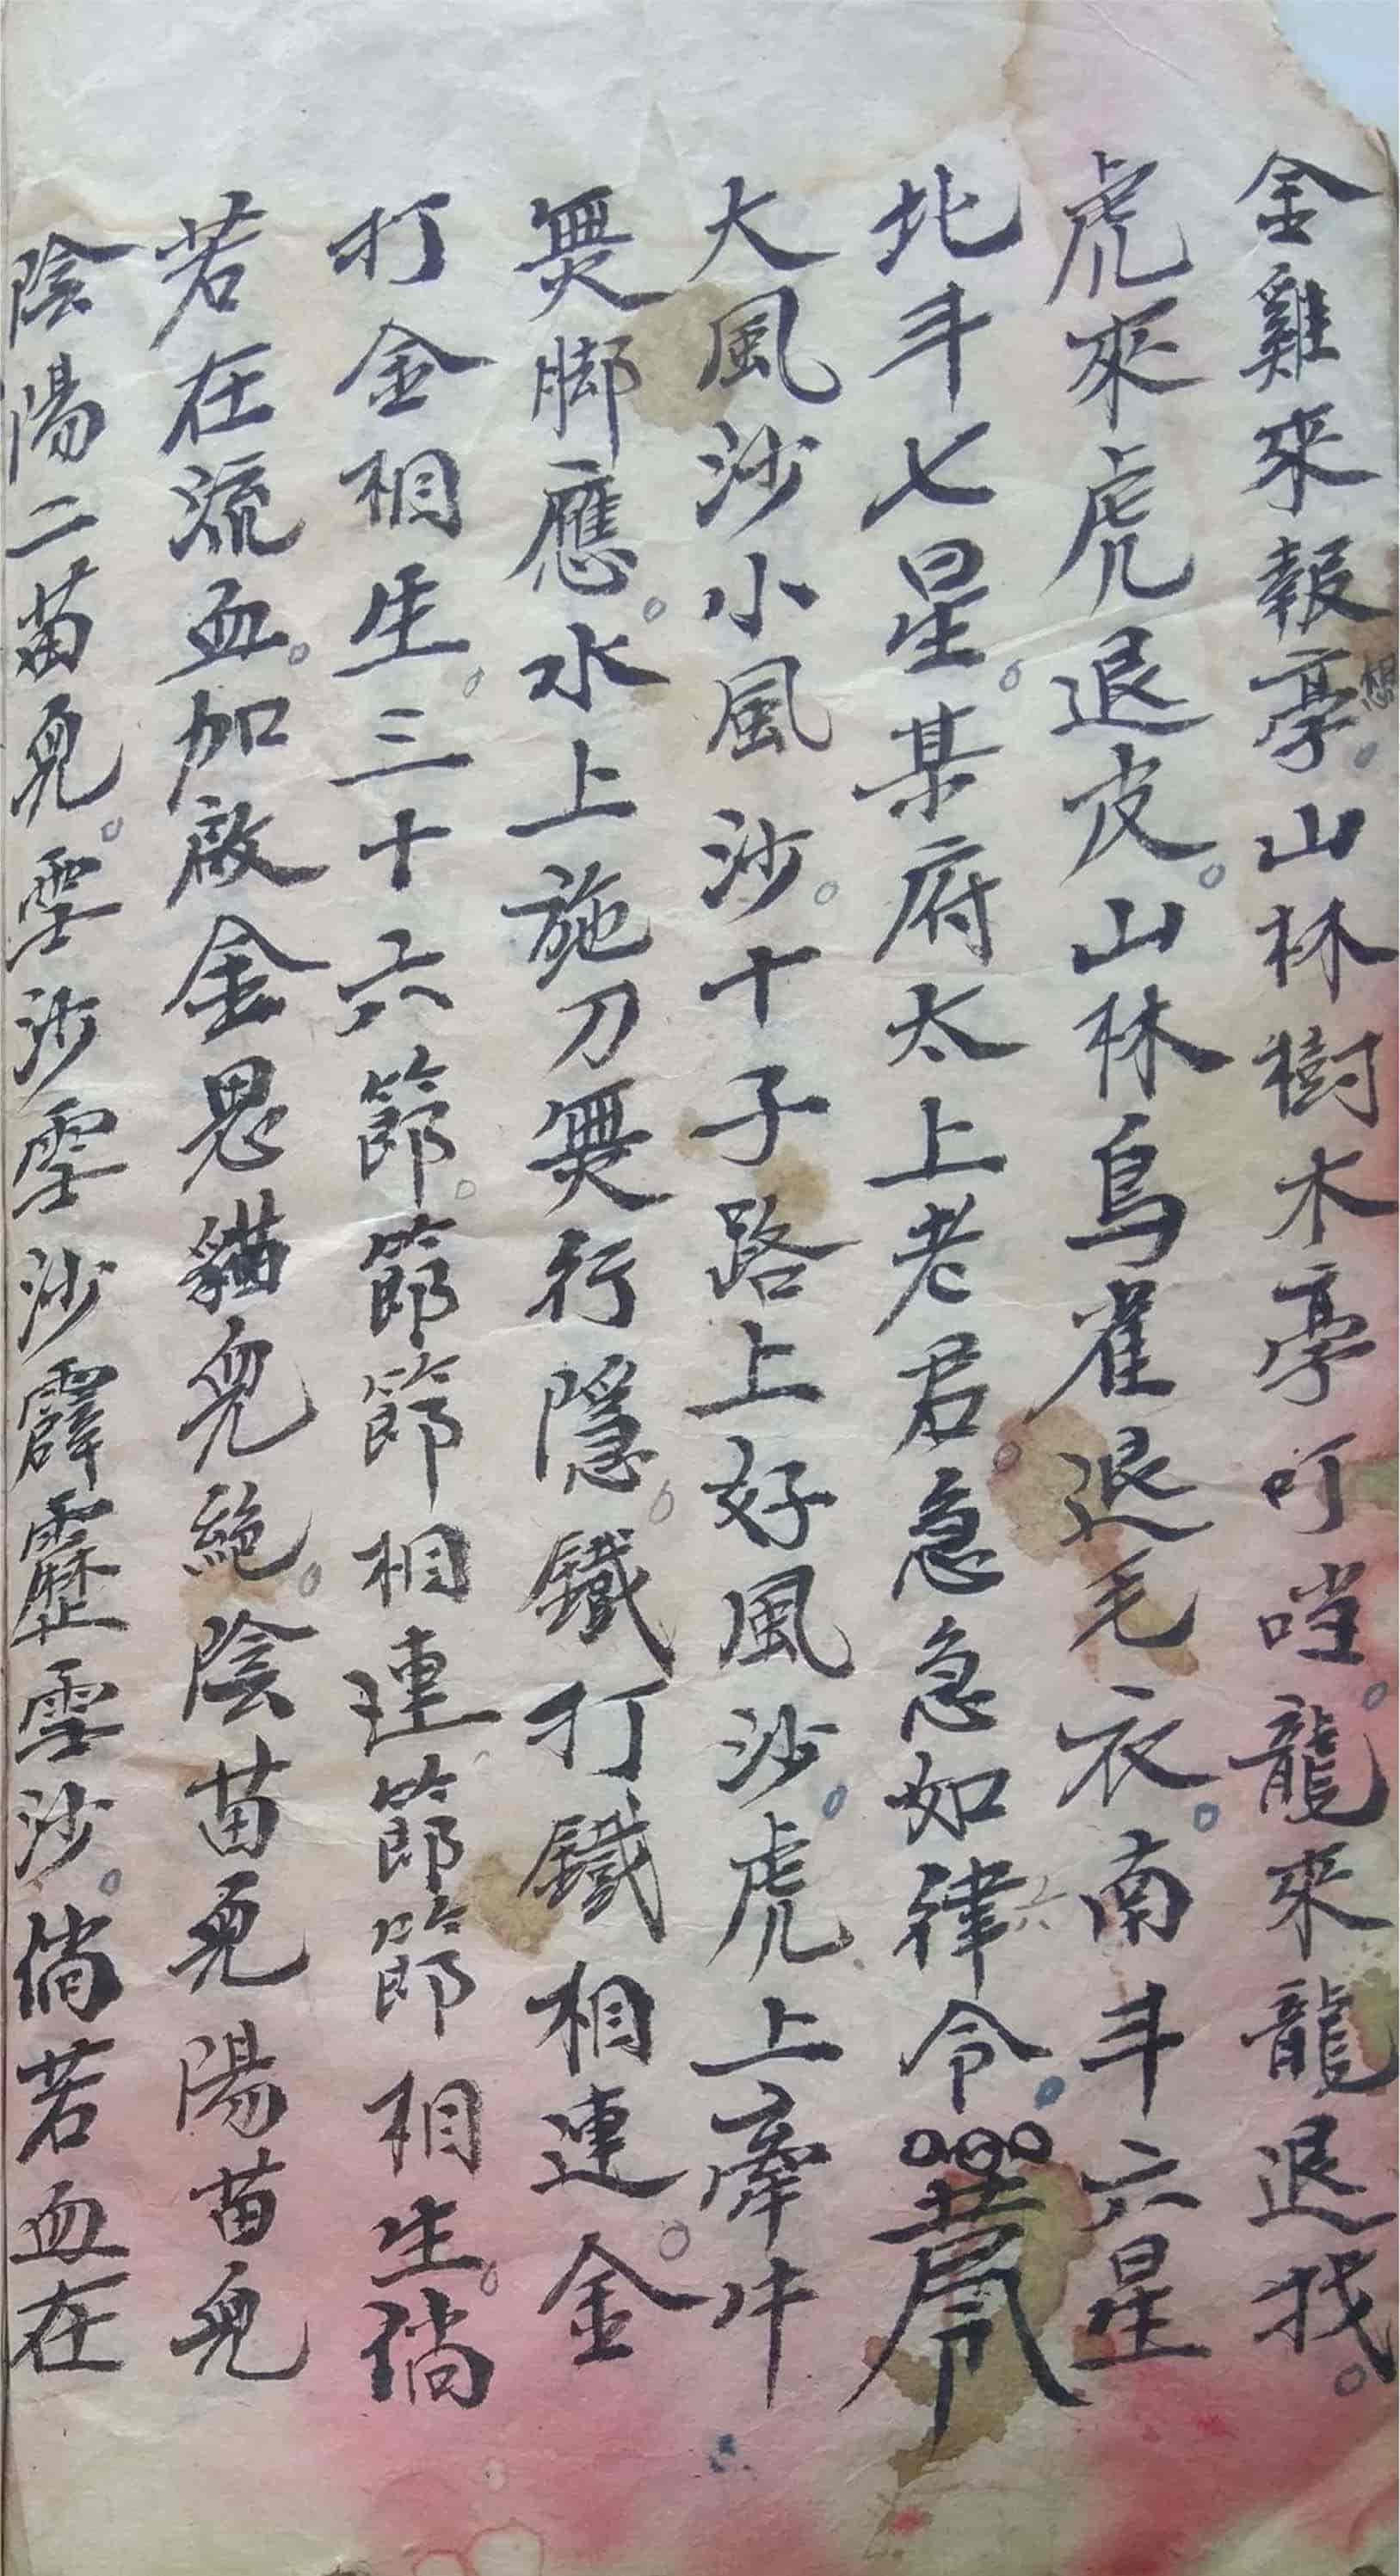 金雞來報亭。山林樹木亭叮噹。龍來龍退找。
虎來虎退皮。山林鳥雀退毛衣。南斗六星
北斗七星。某府太上老君。急急如律令。
大風沙小風沙。十子路上好風沙。虎上牽牛
無脚應。水上施刀無行隱。鐵打鐵相連。金
打金相生。三十六節。節節相連節節相生。倘
若在流血。加啟金恩貓兒絕。陰苗兒陽苗兒
陰陽二苗兒。雪沙雪沙霹靂雪沙。倘若血在